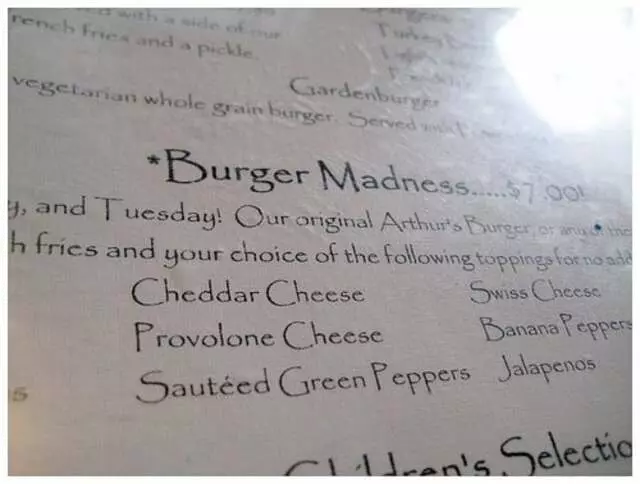 with a side of our
rench fries and a pickle.
Turkey
Gardenburger
vegetarian whole grain burger. Served
*Burger Madness.....$7.00!
y, and Tuesday! Our original Arthur's Burger, or any of the
h fries and your choice of the following toppings for no add
Cheddar Cheese
Swiss Cheese
Provolone Cheese
Banana Peppers
Sautéed Green Peppers
Jalapenos
Children's Selectio